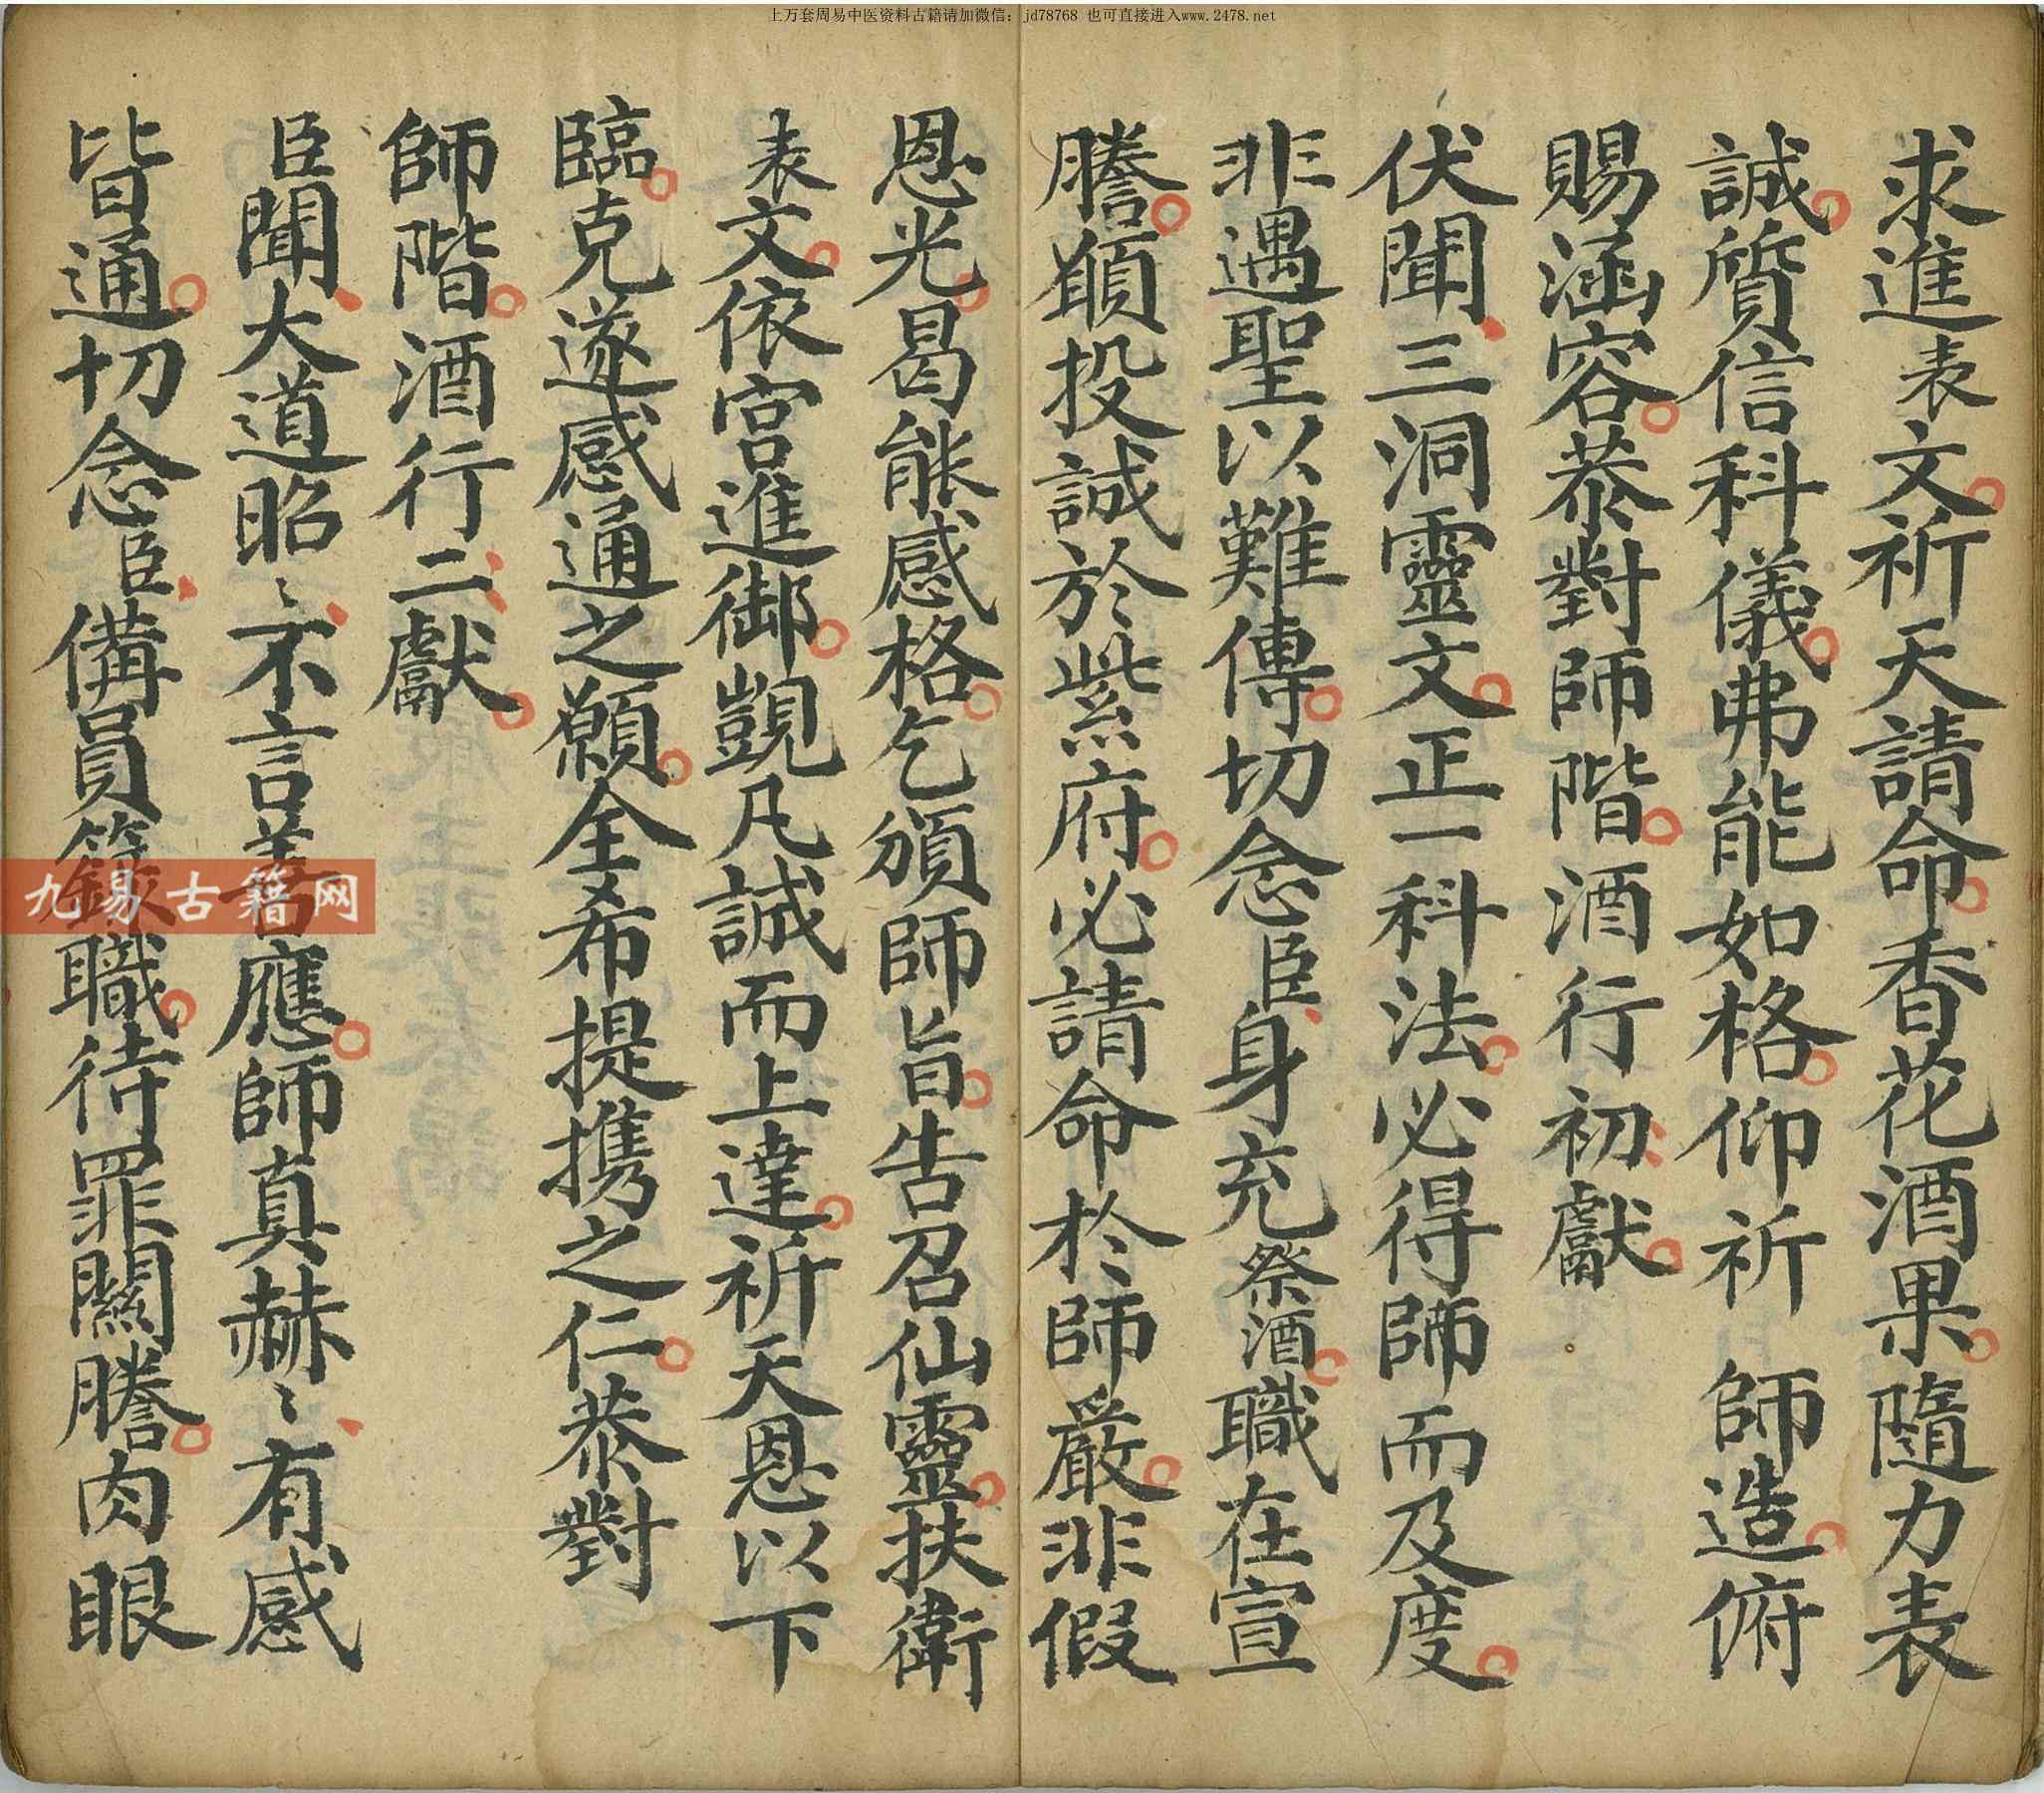 上万套周易中医资料古籍请加微信：jd78768 也可直接进入www.2478.net
求進表文祈天請命香花酒果隨力表
誠質信科儀弗能如格仰祈 師造俯
賜涵容恭對師階酒行初獻
伏聞三洞靈文正一科法必得師而及度
非遇聖以難傳切念臣身充祭酒職在宣
謄頋投誠於紫府必請命於師嚴非假
恩光曷能感格乞頒師旨告召仙靈扶衛
表文依宮進御覬凡誠而上達祈天恩以下
臨克遂感通之願全希提携之仁恭對
師階酒行二獻
臣聞大道昭〻不言善應師真赫〻有感
皆通切念臣備員籙職待罪關謄肉眼
九易古籍网